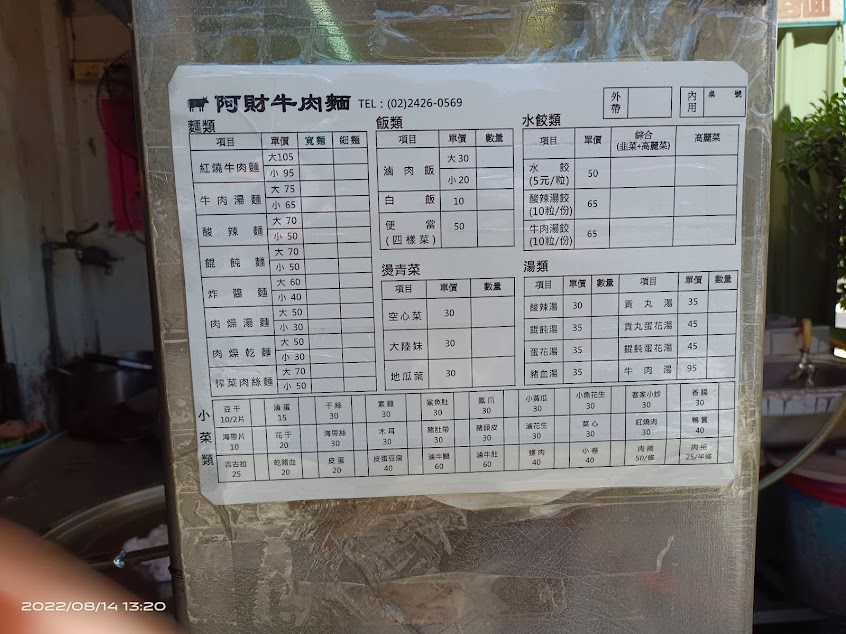 阿財牛肉麵 TEL：(02)2426-0569
外帶
內用 桌 號
麵類
項目 單價 寬麵 細麵
紅燒牛肉麵 大105 小 95
牛肉湯麵 大 75 小 65
酸辣麵 大 70 小 50
餛飩麵 大 70 小 50
炸醬麵 大 60 小 40
肉燥湯麵 大 50 小 30
肉燥乾麵 大 50 小 30
榨菜肉絲麵 大 70 小 50
飯類
項目 單價 數量
滷肉飯 大 30 小 20
白飯 10
便當(四樣菜) 50
燙青菜
項目 單價 數量
空心菜 30
大陸妹 30
地瓜菜 30
水餃類
項目 單價 綜合(韭菜+高麗菜) 高麗菜
水餃(5元/粒) 50
酸辣湯餃(10粒/份) 65
牛肉湯餃(10粒/份) 65
湯類
項目 單價 數量 項目 單價 數量
酸辣湯 30 貢丸湯 35
餛飩湯 35 貢丸蛋花湯 45
蛋花湯 35 餛飩蛋花湯 45
豬血湯 35 牛肉湯 95
小菜類
豆干 10/2片 滷蛋 15 干絲 30 素雞 30 鯊魚肚 30 鳳爪 30 小黃瓜 30 小魚花生 30 客家小炒 30 香腸 30
海帶片 10 花干 20 海帶絲 30 木耳 30 豬肚帶 30 豬頭皮 30 滷花生 30 菜心 30 紅燒肉 30 鴨賞 40
吉古拉 25 乾豬血 20 皮蛋 20 皮蛋豆腐 40 滷牛腱 60 滷牛肚 60 螺肉 40 小卷 40 50/條 25/半條
2022/08/14 13:20